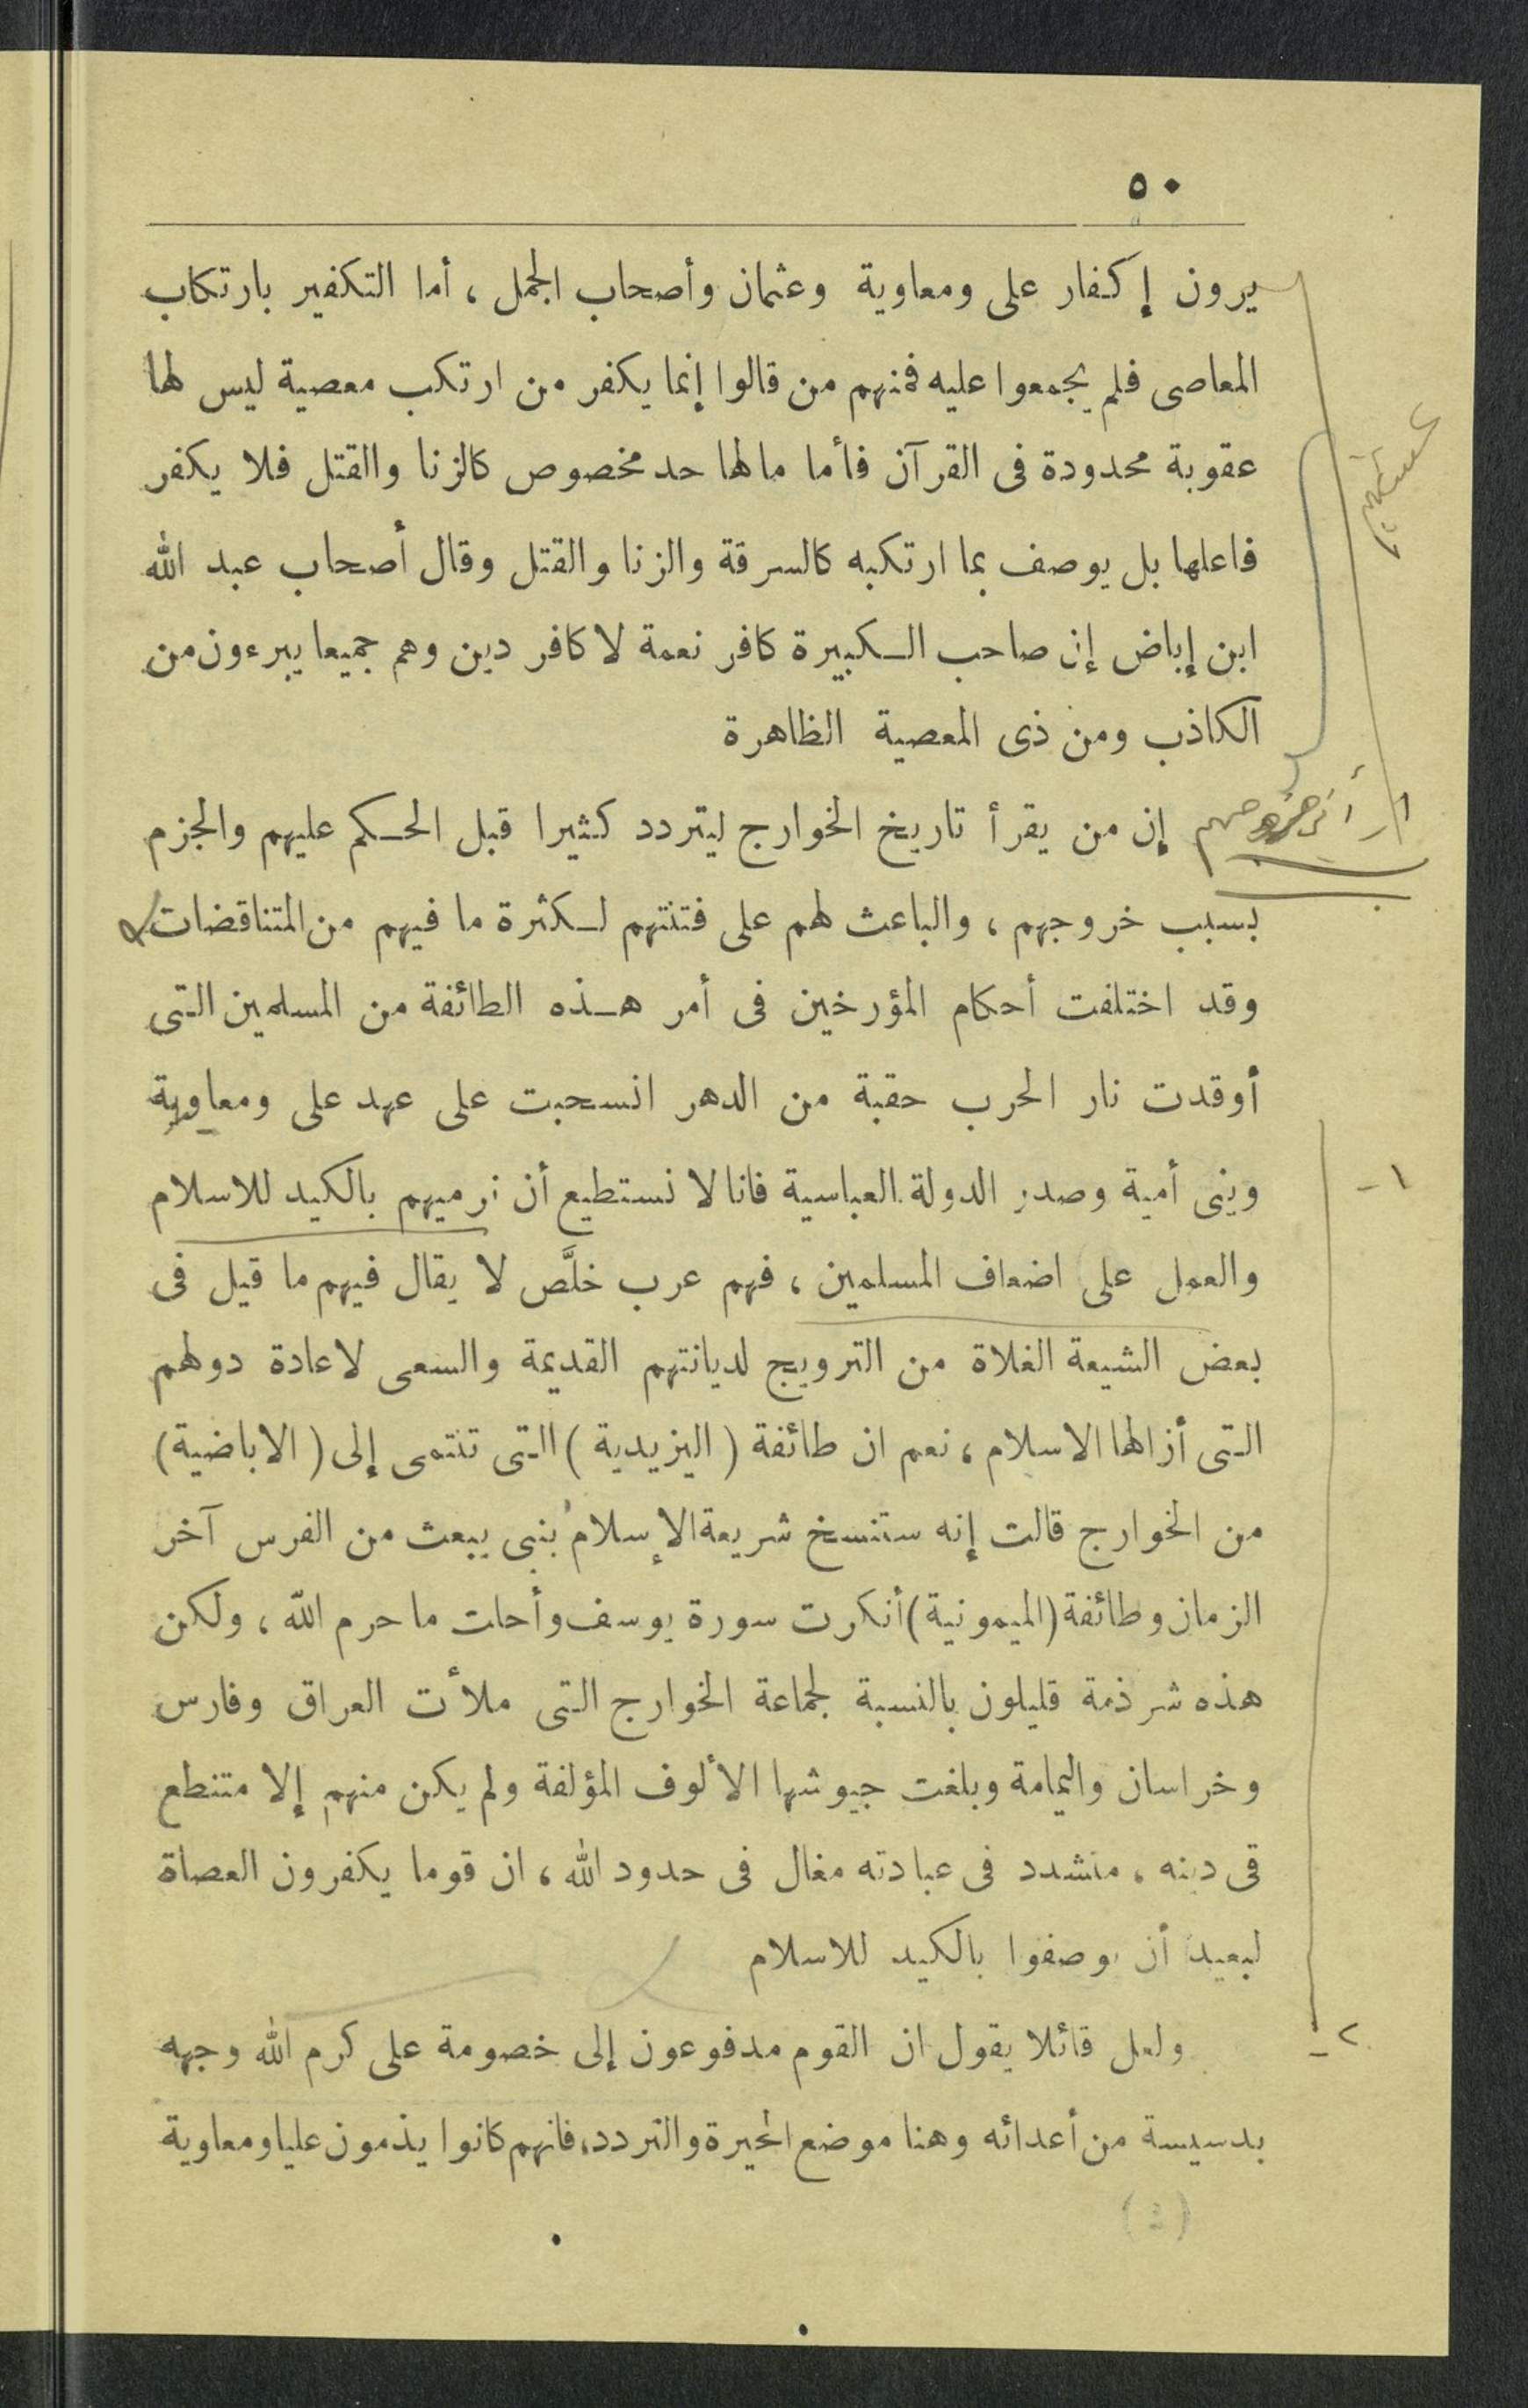 ٥٠
يرون إكفار على ومعاوية وعثمان وأصحاب الجمل ، أما التكفير بارتكاب
المعاصى فلم يجمعوا عليه فمنهم من قالوا إنما يكفر من ارتكب معصية ليس لها
عقوبة محدودة فى القرآن فأما مالها حد مخصوص كالزنا والقتل فلا يكفر
فاعلها بل يوصف بما ارتكبه كالسرقة والزنا والقتل وقال أصحاب عبد الله
ابن إباض إن صاحب الكبيرة كافر نعمة لا كافر دين وهم جميعا يبرءون من
الكاذب ومن ذى المعصية الظاهرة
إن من يقرأ تاريخ الخوارج ليتردد كثيرا قبل الحكم عليهم والجزم
بسبب خروجهم ، والباعث لهم على فتنتهم لكثرة ما فيهم من المتناقضات
وقد اختلفت أحكام المؤرخين فى أمر هذه الطائفة من المسلمين التى
أوقدت نار الحرب حقبة من الدهر انسحبت على عهد على ومعاوية
وبنى أمية وصدر الدولة العباسية فانا لا نستطيع أن نرميهم بالكيد للاسلام
والعمل على اضعاف المسلمين ، فهم عرب خلَّص لا يقال فيهم ما قيل فى
بعض الشيعة الغلاة من الترويج لديانتهم القديمة والسعى لاعادة دولهم
التى أزالها الاسلام ، نعم ان طائفة ( اليزيدية ) التى تنتمى إلى ( الاباضية )
من الخوارج قالت إنه ستنسخ شريعة الإسلام بنبى يبعث من الفرس آخر
الزمان وطائفة (الميمونية) أنكرت سورة يوسف وأحلت ما حرم الله ، ولكن
هذه شرذمة قليلون بالنسبة لجماعة الخوارج التى ملأت العراق وفارس
وخراسان واليمامة وبلغت جيوشها الألوف المؤلفة ولم يكن منهم إلا متنطع
قى دينه ، متشدد فى عبادته مغال فى حدود الله ، ان قوما يكفرون العصاة
لبعيد أن يوصفوا بالكيد للاسلام
ولعل قائلا يقول ان القوم مدفوعون إلى خصومة على كرم الله وجهه
بدسيسة من أعدائه وهنا موضع الحيرة والتردد، فانهم كانوا يذمون عليا ومعاوية
١ -
٢ -